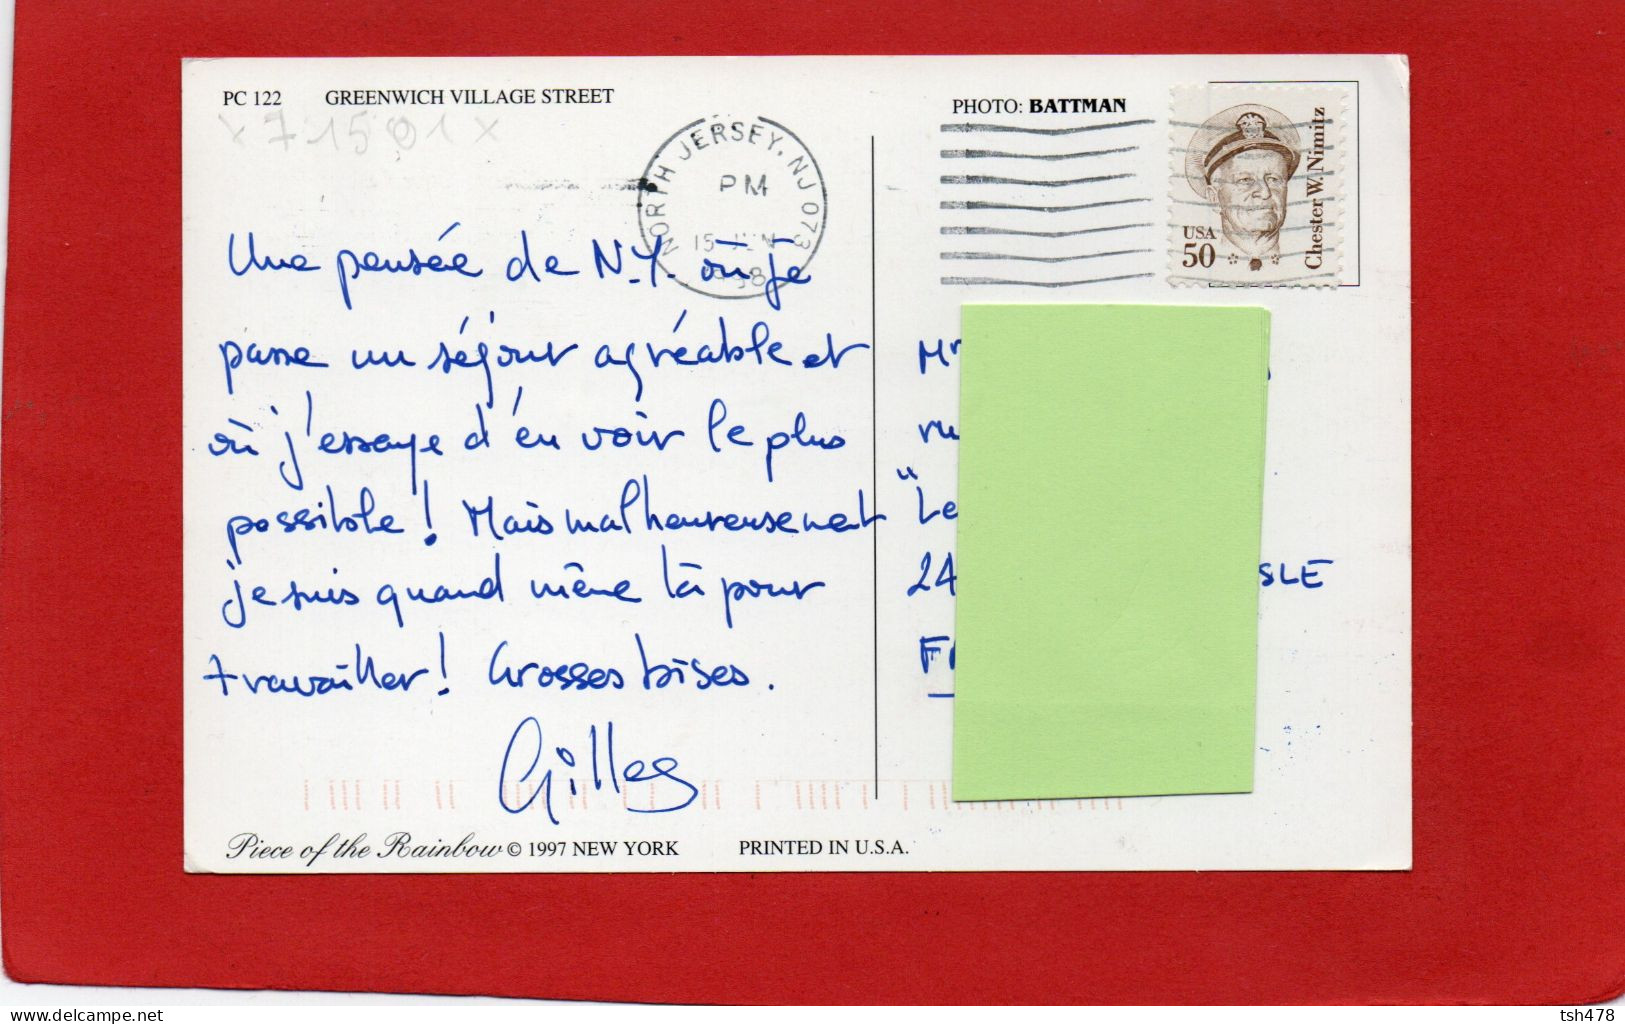 PC 122 GREENWICH VILLAGE STREET
x 71501 x
PHOTO: BATTMAN
NORTH JERSEY, NJ 073
PM
15 JUN
1998
Chester W. Nimitz
USA
50
Une pensée de N.Y. où je
passe un séjour agréable et
où j'essaye d'en voir le plus
possible ! Mais malheureusement
je suis quand même là pour
travailler ! Grosses bises.
Gilles
Mr
"Le
24 SLE
Piece of the Rainbow © 1997 NEW YORK PRINTED IN U.S.A.
www.delcampe.net
tsh478